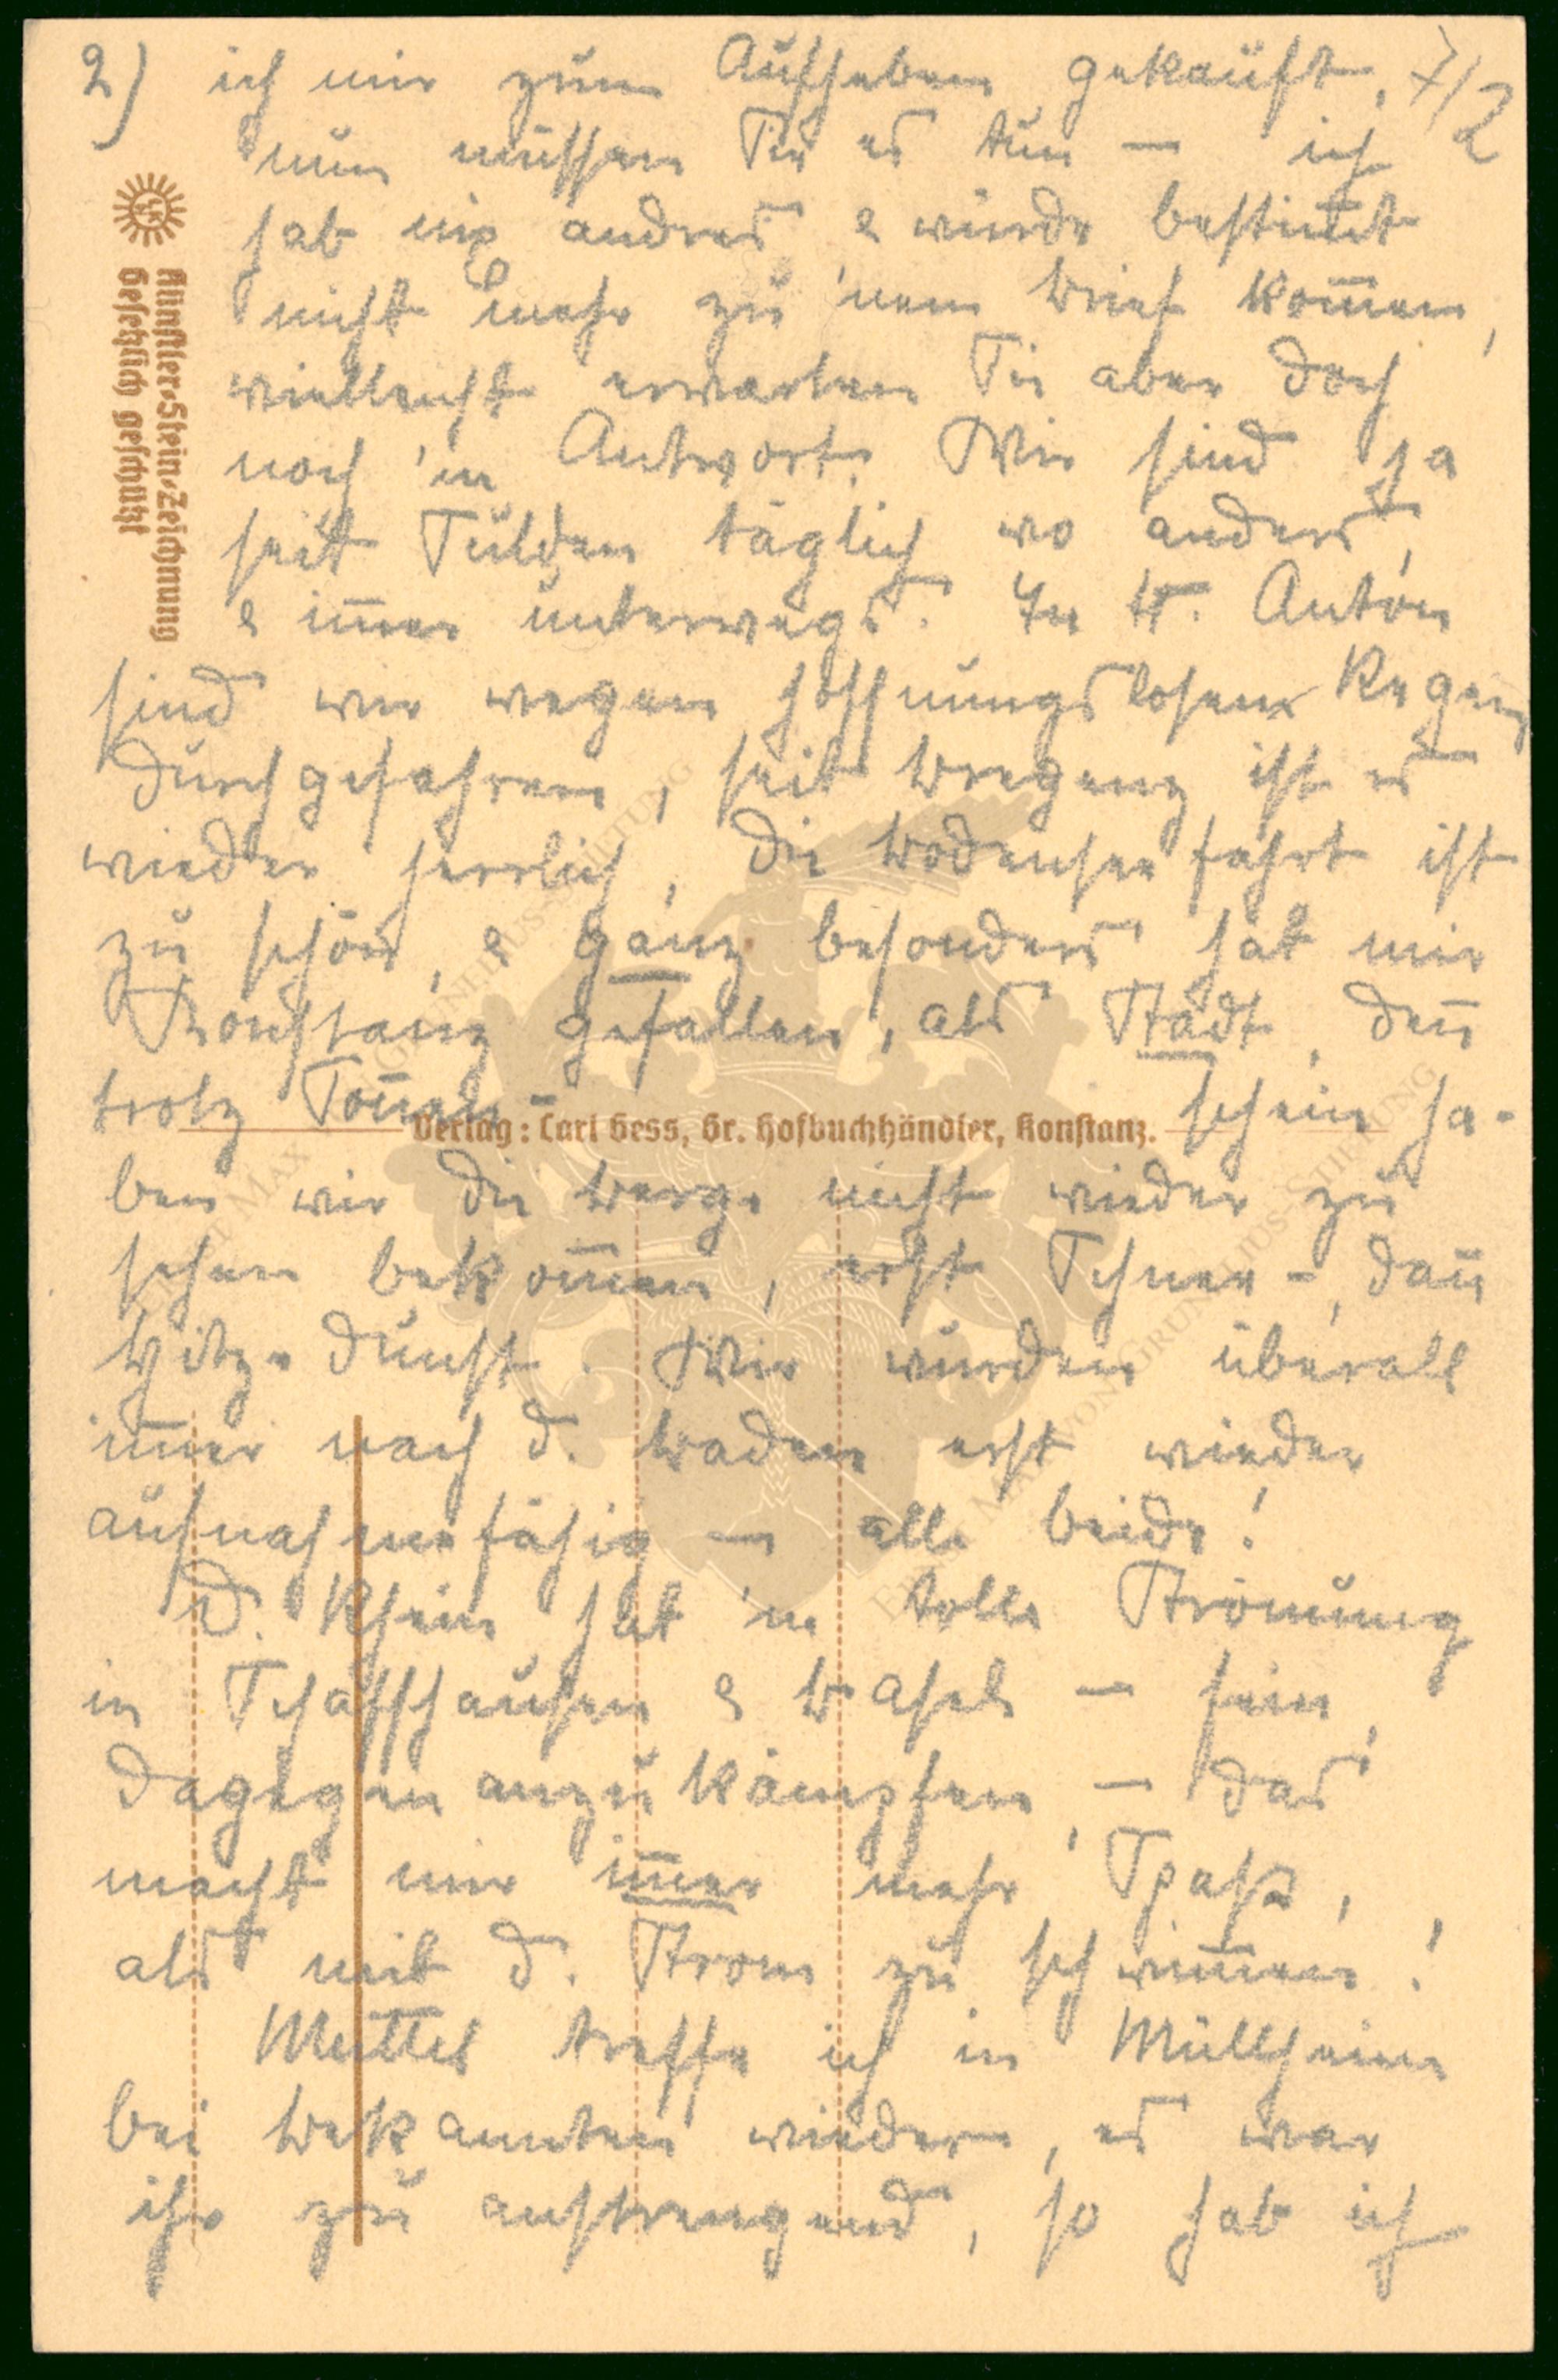 2) ich mir zum Aufheben gekauft, 7/2
nun müssen Sie es tun — ich
hab nix andres & würde bestim̄t
nicht mehr zu 'nem Brief kom̄en,
vielleicht erwarten Sie aber doch
noch 'ne Antwort. Wir sind ja
seit Sülden täglich wo anders,
& im̄er unterwegs. In St. Anton
sind wir wegen hoffnungslosem Regen
durchgefahren, seit Bregenz ist es
wieder herrlich, die Bodenseefahrt ist
zu schön, & ganz besonders hat mir
Konstanz gefallen, als Stadt, den̄
trotz Son̄en- schein ha-
ben wir die Berge nicht wieder zu
sehen bekom̄en, erst Schnee-, dan̄
Hitze-dunst. Wir wurden überall
im̄er nach d. Baden erst wieder
aufnahmefähig — alle beide!
D. Rhein hat 'ne tolle Strömung
in Schaffhausen & Basel — fein,
dagegen anzukämpfen, — das
macht mir im̄er mehr Spaß,
als mit d. Strom zu schwim̄en!
Muttel treffe ich in Müllheim
bei Bekannten wieder, es war
ihr zu anstrengend, so hab ich
Künstler-Stein-Zeichnung
Gesetzlich geschützt
Verlag: Carl Gess, Gr. Hofbuchhändler, Konstanz.
ERNST MAX VON GRUNELIUS-STIFTUNG
ERNST MAX VON GRUNELIUS-STIFTUNG